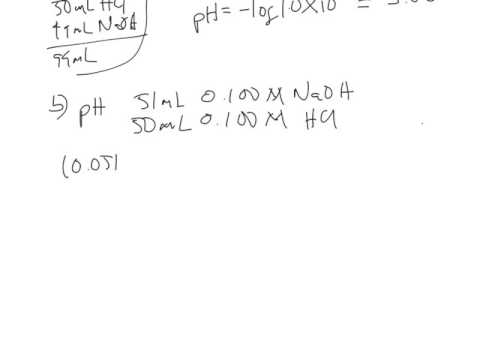 50mL HCl
49mL NaOH
99mL
pH = -log 10 x 10
b) pH 51mL 0.100 M NaOH
50mL 0.100 M HCl
(0.051